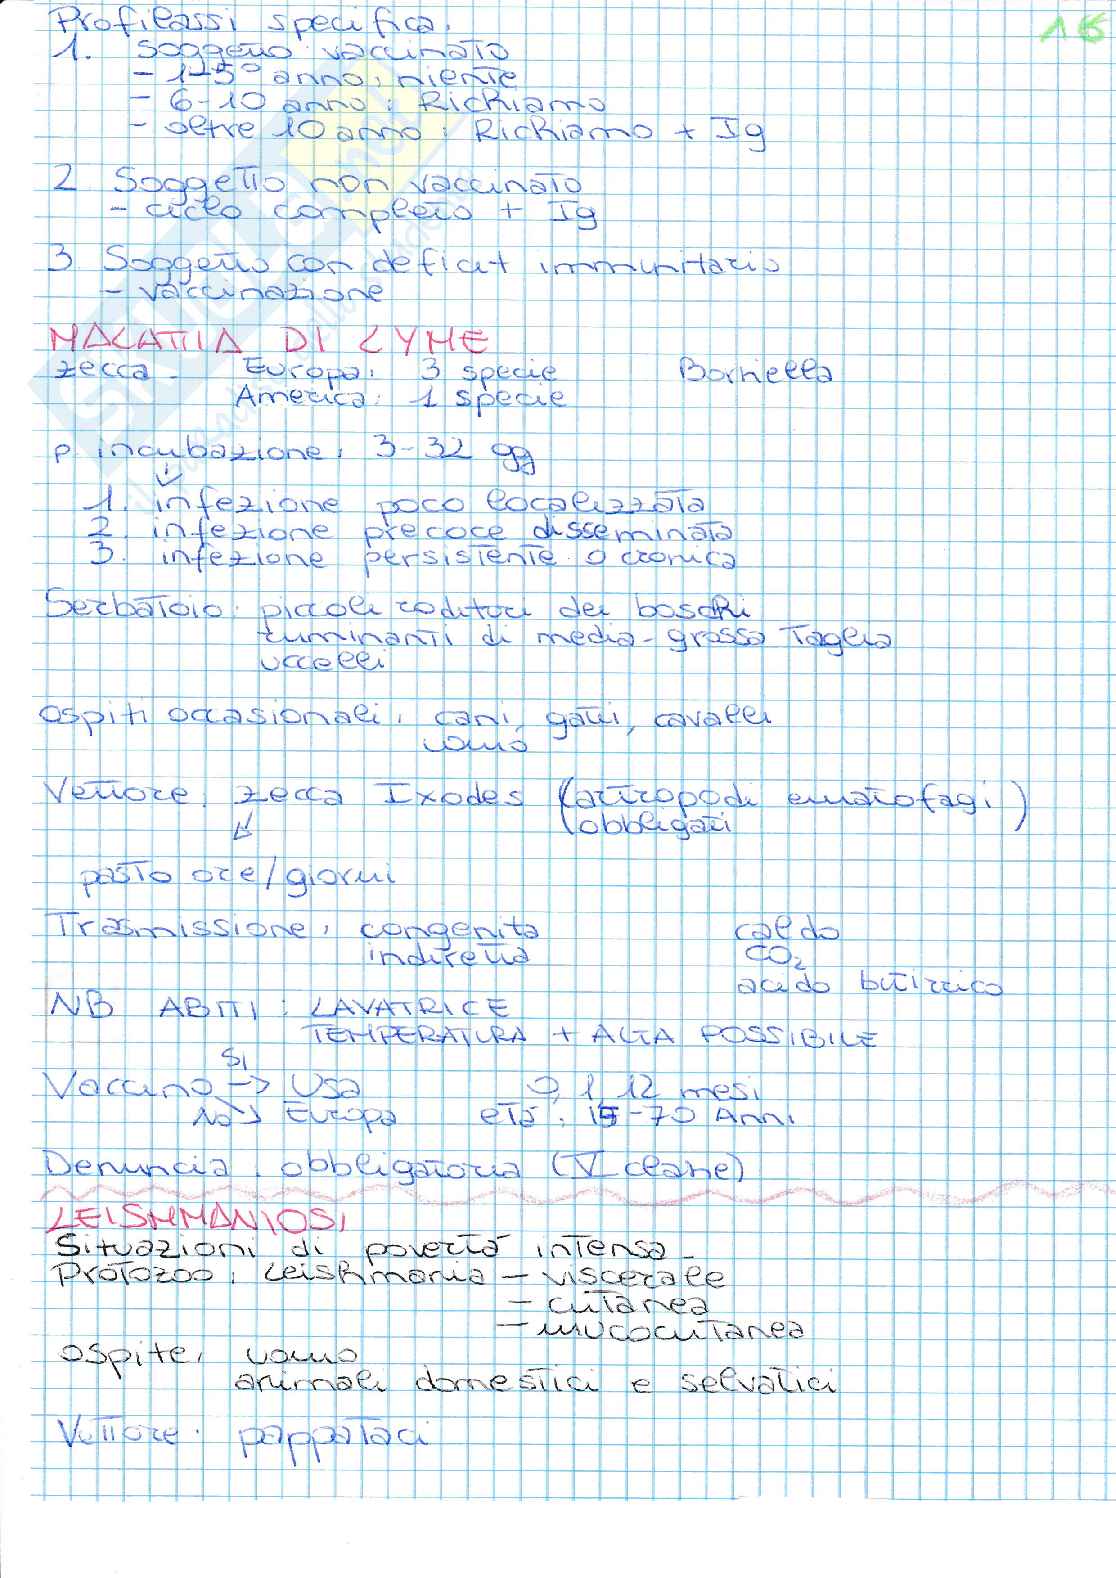 Profilassi specifica. 16
1. Soggetto vaccinato
- 1-5° anno: niente
- 6-10 anno: Richiamo
- oltre 10 anno: Richiamo + Ig
2 Soggetto non vaccinato
- ciclo completo + Ig
3 Soggetto con deficit immunitario
- vaccinazione
MALATTIA DI LYME
zecca - Europa: 3 specie Borriella
America: 1 specie
p incubazione: 3-32 gg
1. infezione poco localizzata
2. infezione precoce disseminata
3. infezione persistente o cronica
Serbatoio: piccoli roditori dei boschi
ruminanti di media-grossa Taglia
uccelli
Ospiti occasionali: cani, gatti, cavalli
uomo
Vettore: zecca Ixodes (artropodi ematofagi)
obbligati
pasto ore/giorni
Trasmissione: congenita caldo
indiretta CO2
acido butirrico
NB ABITI: LAVATRICE
TEMPERATURA + ALTA POSSIBILE
Vaccino SI → Usa 0, 1, 12 mesi
NO → Europa età: 15-70 Anni
Denuncia: obbligatoria (V classe)
LEISHMANIOSI
Situazioni di povertà intensa -
Protozoo: Leishmania - viscerale
- cutanea
- mucocutanea
Ospite: uomo
animali domestici e selvatici
Vettore: pappataci